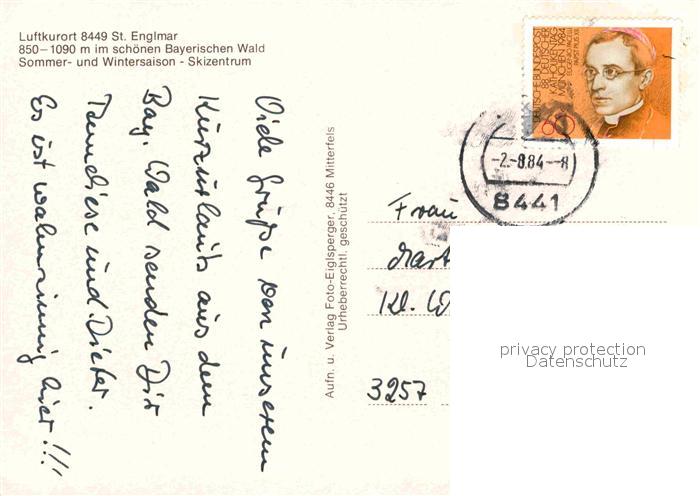 Luftkurort 8449 St. Englmar
850–1090 m im schönen Bayerischen Wald
Sommer- und Wintersaison - Skizentrum
Viele Grüße von unserem
Kurzurlaub aus dem
Bay. Wald senden Dir
und Dieter.
Es ist wahnsinnig hier!!!
Aufn. u. Verlag Foto-Eiglsperger, 8446 Mitterfels
Urheberrechtl. geschützt
DEUTSCHE BUNDESPOST
88. DEUTSCHER
KATHOLIKENTAG
MÜNCHEN 1984
EUGENIO PACELLI
PAPST PIUS XII.
60
-2.-8.84--8
8441
Frau
Kl.
3257
privacy protection
Datenschutz